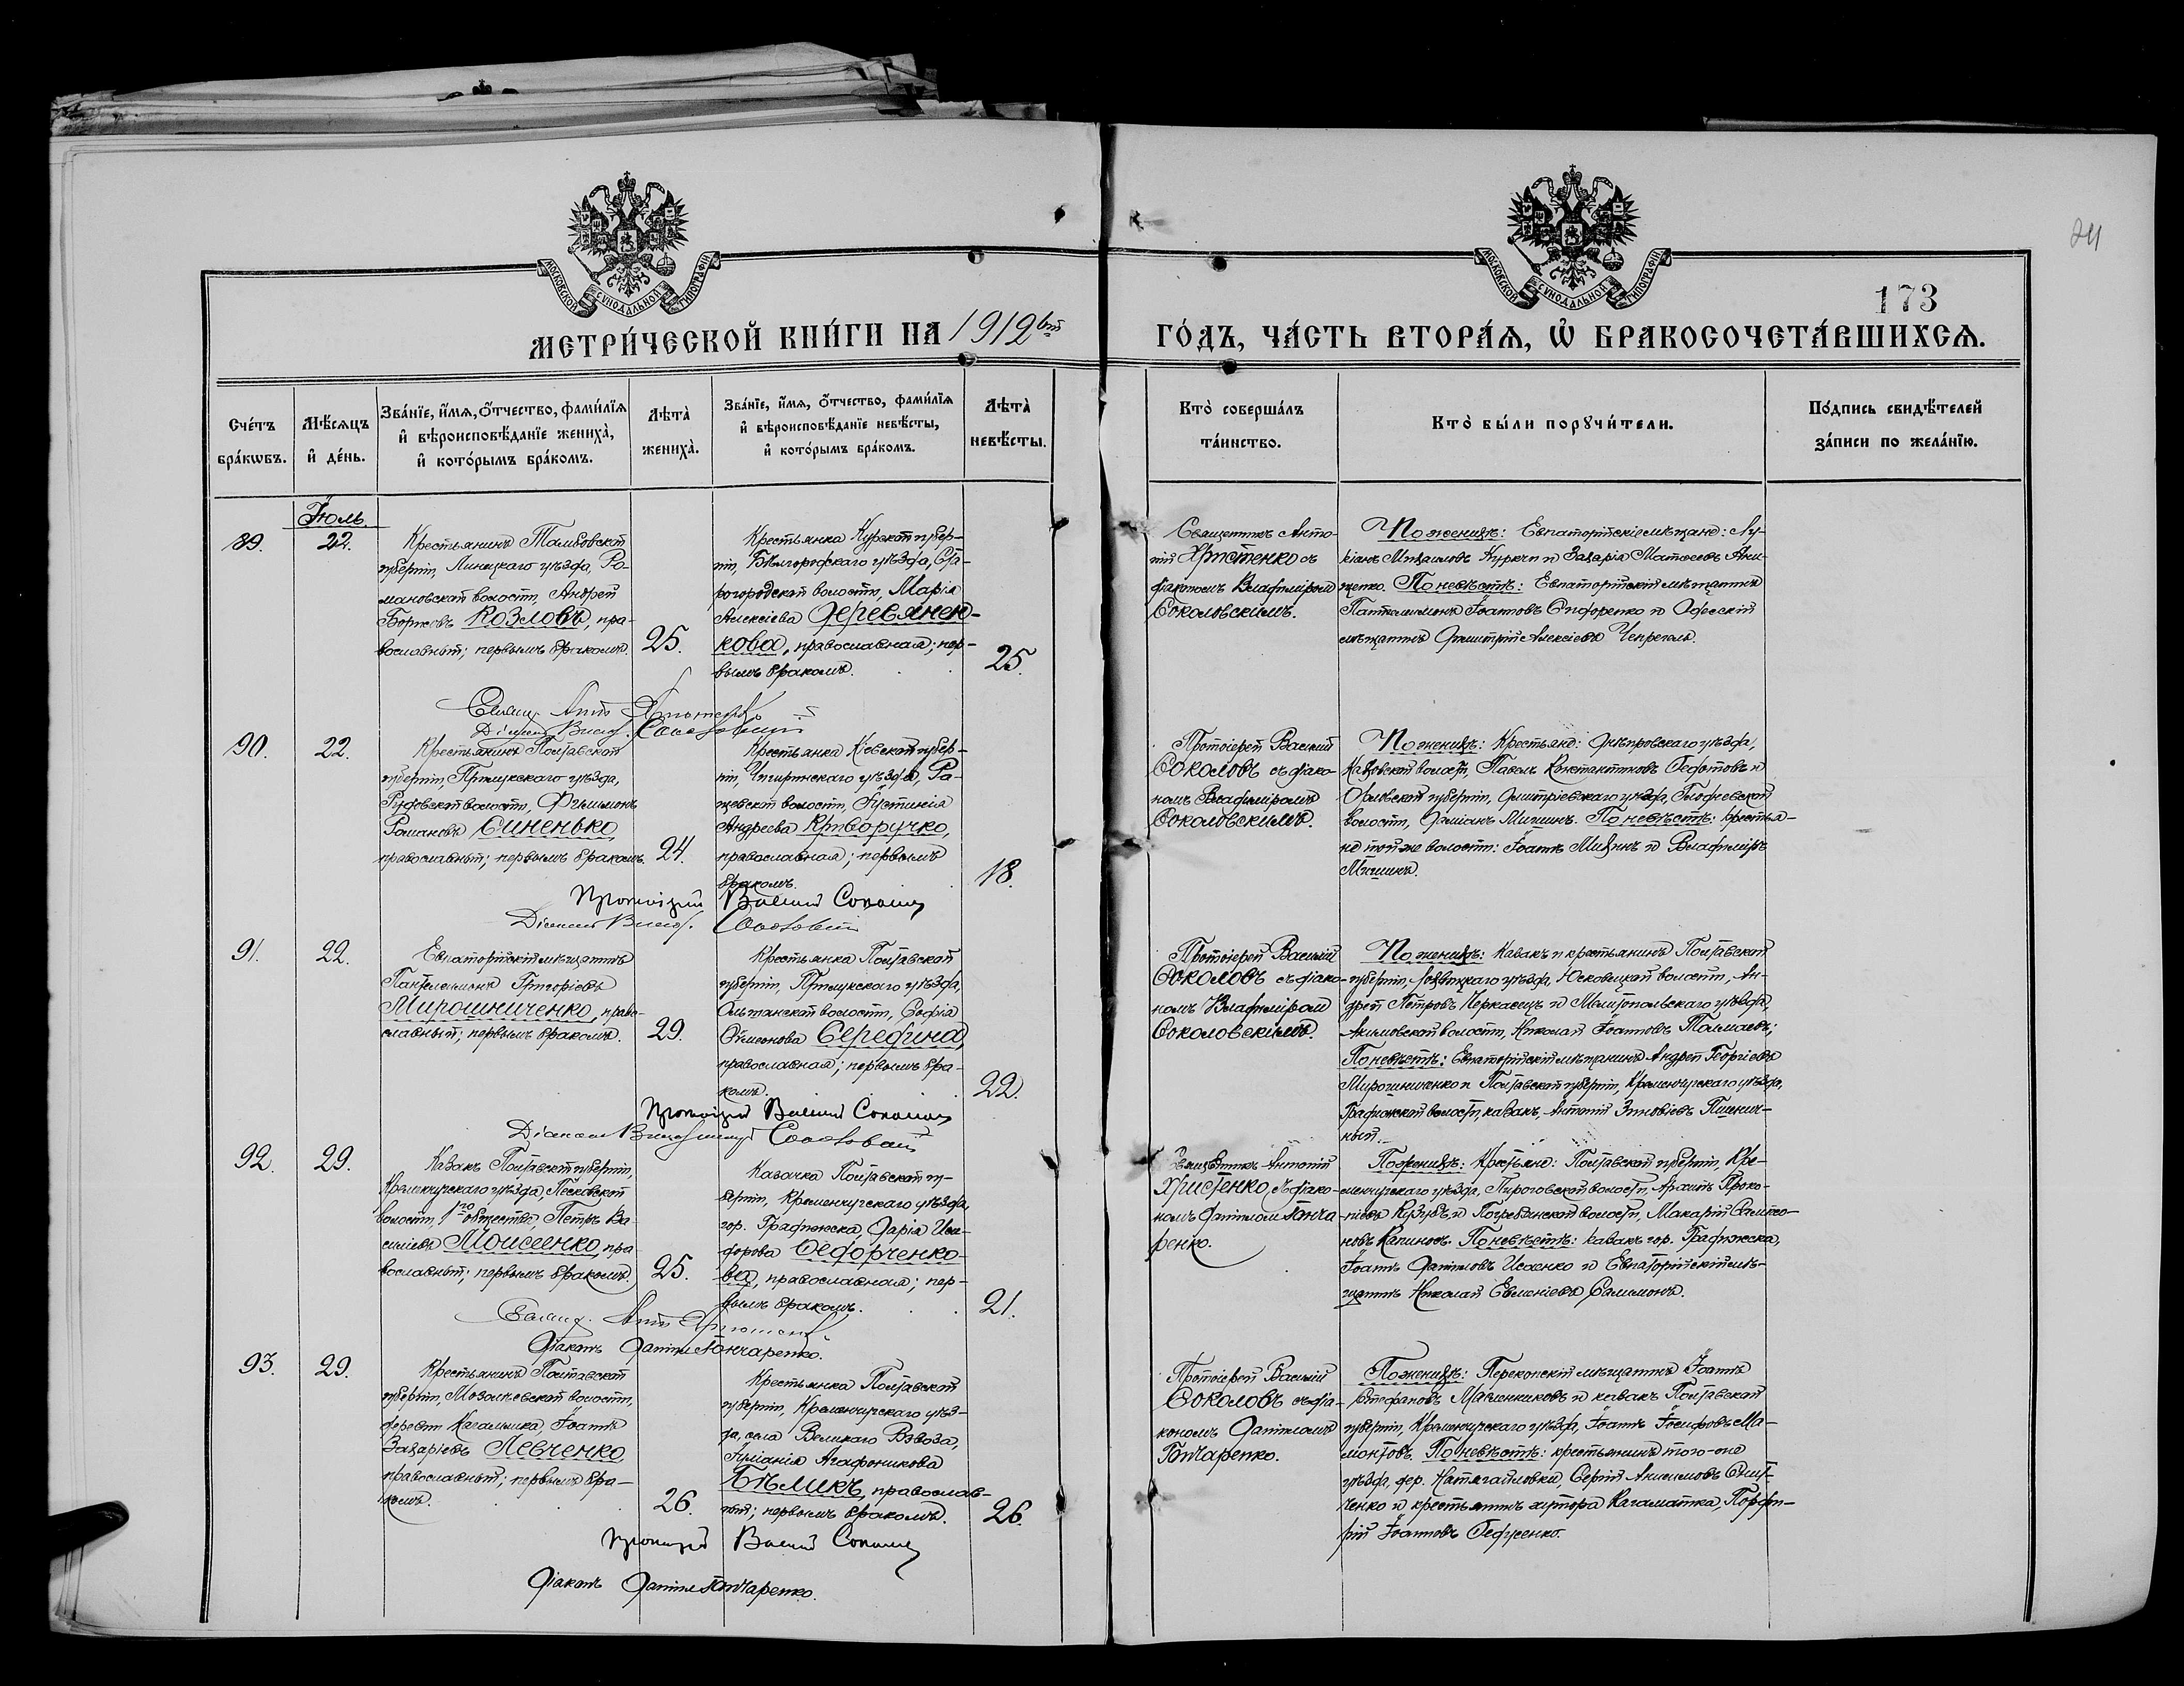 24
173
МОСКОВСКОЙ СѴНОДАЛЬНОЙ ТИПОГРАФІИ
МОСКОВСКОЙ СѴНОДАЛЬНОЙ ТИПОГРАФІИ
МЕТРИ́ЧЕСКОЙ КНИ́ГИ НА 1912 ГО́ДЪ, ЧА́СТЬ ВТОРА́Я, Ѡ БРАКОСОЧЕТА́ВШИХСЯ.
Сче́тъ
бра́кѡвъ.
Мѣ́сяцъ
и҆ де́нь.
Зва́нїе, и҆́мя, ѻ҆́тчество, фами́лїя
и҆ вѣроисповѣ́данїе жениха̀,
и҆ кото́рымъ бра́комъ.
Лѣта̀
жениха̀.
Зва́нїе, и҆́мя, ѻ҆́тчество, фами́лїя
и҆ вѣроисповѣ́данїе невѣ́сты,
и҆ кото́рымъ бра́комъ.
Лѣта̀
невѣ́сты.
Кто̀ соверша́лъ
та́инство.
Кто̀ бы́ли порꙋчи́тели.
По́дпись свидѣ́телей
за́писи по жела́нїю.
Іюль.
89.
22.
Крестьянинъ Тамбовской
губерніи, Липецкаго уѣзда, Ро-
мановской волости, Андрей
Козловъ, пра-
вославный; первымъ бракомъ.
25.
Крестьянка Курской губер-
ніи, Бѣлгородскаго уѣзда, Ста-
рогородской волости, Марія
Алексіева Деревянен-
кова, православная; пер-
вымъ бракомъ.
25.
Священникъ Анто-
ній Христенко съ
діакономъ Владиміромъ
Соколовскимъ.
По женихѣ: Евпаторійскіе мѣщане: Лу-
кіанъ и Захарія Матѳеевъ
По невѣстѣ: Евпаторійскій мѣщанинъ
Пантелимонъ Іоанновъ Сидоренко и Одесскій
мѣщанинъ Димитрій Алексіевъ
90.
22.
Крестьянинъ Полтавской
губерніи, Прилукскаго уѣзда,
волости, Филимонъ
Романовъ Синенько,
православный; первымъ бракомъ.
24.
Крестьянка Кіевской губер-
ніи, Чигиринскаго уѣзда, Ра-
цевской волости, Іустинія
Андреева Криворучко,
православная; первымъ
бракомъ.
18.
Протоіерей Василій
Соколовъ съ діако-
номъ Владиміромъ
Соколовскимъ.
По женихѣ: Крестьяне: Днѣпровскаго уѣзда,
Каховской волости, Павелъ Константиновъ Федотовъ и
Орловской губерніи, Дмитріевскаго уѣзда,
волости, Даміанъ Мишинъ. По невѣстѣ: крестья-
не той же волости: Іоаннъ и Владиміръ
Мишинъ.
Протоіерей Василій Соколовъ
91.
22.
Евпаторійскій мѣщанинъ
Пантелеимонъ Григоріевъ
Мирошниченко, право-
славный; первымъ бракомъ.
29.
Крестьянка Полтавской
губерніи, Прилукскаго уѣзда,
Ольшанской волости, Софія
Симеонова Середина,
православная; первымъ бра-
комъ.
22.
Протоіерей Василій
Соколовъ съ діако-
номъ Владиміромъ
Соколовскимъ.
По женихѣ: Казакъ и крестьянинъ Полтавской
губерніи, Лохвицкаго уѣзда, Юсковецкой волости, Ан-
дрей Петровъ Черкасецъ и Мелитопольскаго уѣзда,
Акимовской волости, Николай Іоанновъ Толмачевъ;
По невѣстѣ: Евпаторійскій мѣщанинъ Андрей Георгіевъ
Мирошниченко и Полтавской губерніи, Кременчугскаго уѣзда,
Градижской волости, казакъ, Антоній Зиновіевъ Пшенич-
ный.
Протоіерей Василій Соколовъ
92.
29.
Казакъ Полтавской губерніи,
Кременчугскаго уѣзда, Песковской
волости, 1го общества, Петръ Ва-
силіевъ Моисеенко, пра-
вославный; первымъ бракомъ.
25.
Казачка Полтавской гу-
берніи, Кременчугскаго уѣзда,
гор. Градижска, Дарія Иси-
дорова Федорченко-
ва, православная; пер-
вымъ бракомъ.
21.
Священникъ Антоній
Христенко съ діако-
номъ Даніиломъ Гонча-
ренко.
По женихѣ: Крестьяне: Полтавской губерніи, Кре-
менчугскаго уѣзда, Пироговской волости, Проко-
піевъ Кузубъ и Погребянской волости, Макарій
По невѣстѣ: казакъ гор. Градижска,
Іоаннъ Данииловъ Исаенко и Евпаторійскій мѣ-
щанинъ Николай Евменіевъ Саламонъ.
Діаконъ Даніилъ Гончаренко.
93.
29.
Крестьянинъ Полтавской
губерніи, Мозолеевской волости,
деревни Кагамлыка, Іоаннъ
Захаріевъ Левченко,
православный; первымъ бра-
комъ.
26.
Крестьянка Полтавской
губерніи, Кременчугскаго уѣз-
да, села Великаго Взвоза,
Іуліанія Агафоникова
Бѣликъ, православ-
ная; первымъ бракомъ.
26.
Протоіерей Василій
Соколовъ съ діа-
кономъ Даніиломъ
Гончаренко.
По женихѣ: Перекопскій мѣщанинъ Іоаннъ
Стефановъ Масленниковъ и казакъ Полтавской
губерніи, Кременчугскаго уѣзда, Іоаннъ Іосифовъ Ма-
монтовъ. По невѣстѣ: крестьянинъ того-же
уѣзда, дер. Натягайловки, Сергій Анисимовъ
и крестьянинъ хутора Порфи-
рій Іоанновъ
Протоіерей Василій Соколовъ
Діаконъ Даніилъ Гончаренко.